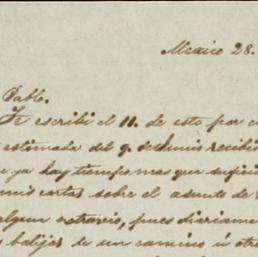 Mexico 28.
Pablo.
Te escribi el 11. de esto por
estimada del 9. de Junio recibi
ya hay tiempo mas que sufici
mis cartas sobre el asunto de
algun extravio, pues diariame
balijas de un camino ú otro